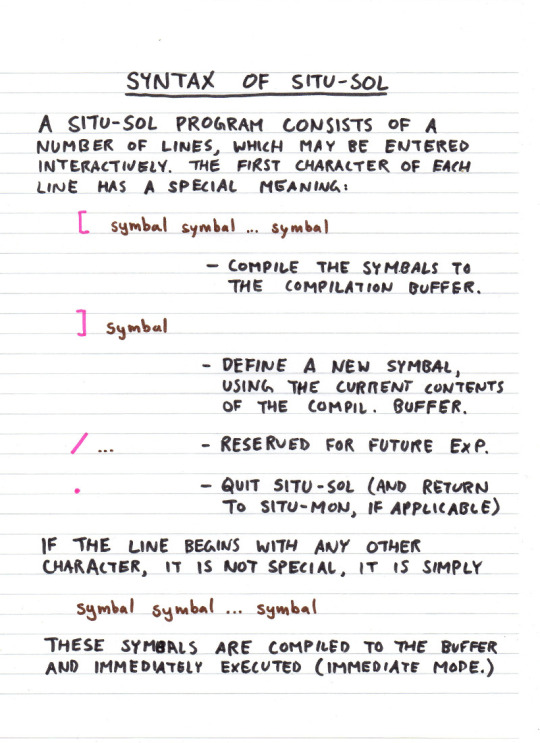 SYNTAX OF SITU-SOL
A SITU-SOL PROGRAM CONSISTS OF A
NUMBER OF LINES, WHICH MAY BE ENTERED
INTERACTIVELY. THE FIRST CHARACTER OF EACH
LINE HAS A SPECIAL MEANING:
[ symbal symbal ... symbal
- COMPILE THE SYMBALS TO
THE COMPILATION BUFFER.
] symbal
- DEFINE A NEW SYMBAL,
USING THE CURRENT CONTENTS
OF THE COMPIL. BUFFER.
/ ... - RESERVED FOR FUTURE EXP.
. - QUIT SITU-SOL (AND RETURN
TO SITU-MON, IF APPLICABLE)
IF THE LINE BEGINS WITH ANY OTHER
CHARACTER, IT IS NOT SPECIAL, IT IS SIMPLY
symbal symbal ... symbal
THESE SYMBALS ARE COMPILED TO THE BUFFER
AND IMMEDIATELY EXECUTED (IMMEDIATE MODE.)